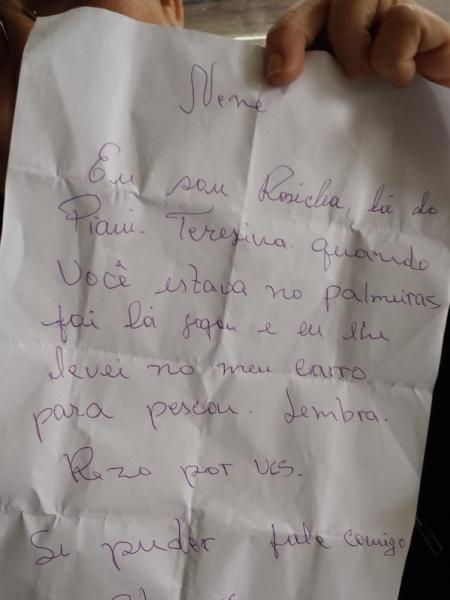 Nene
Eu sou Rosiclea, lá do
Piaui. Teresina. quando
Você estava no palmeiras
foi lá jogou e eu lhe
levei no meu carro
para pescar. Lembra.
Rezo por vcs.
Se puder fale comigo